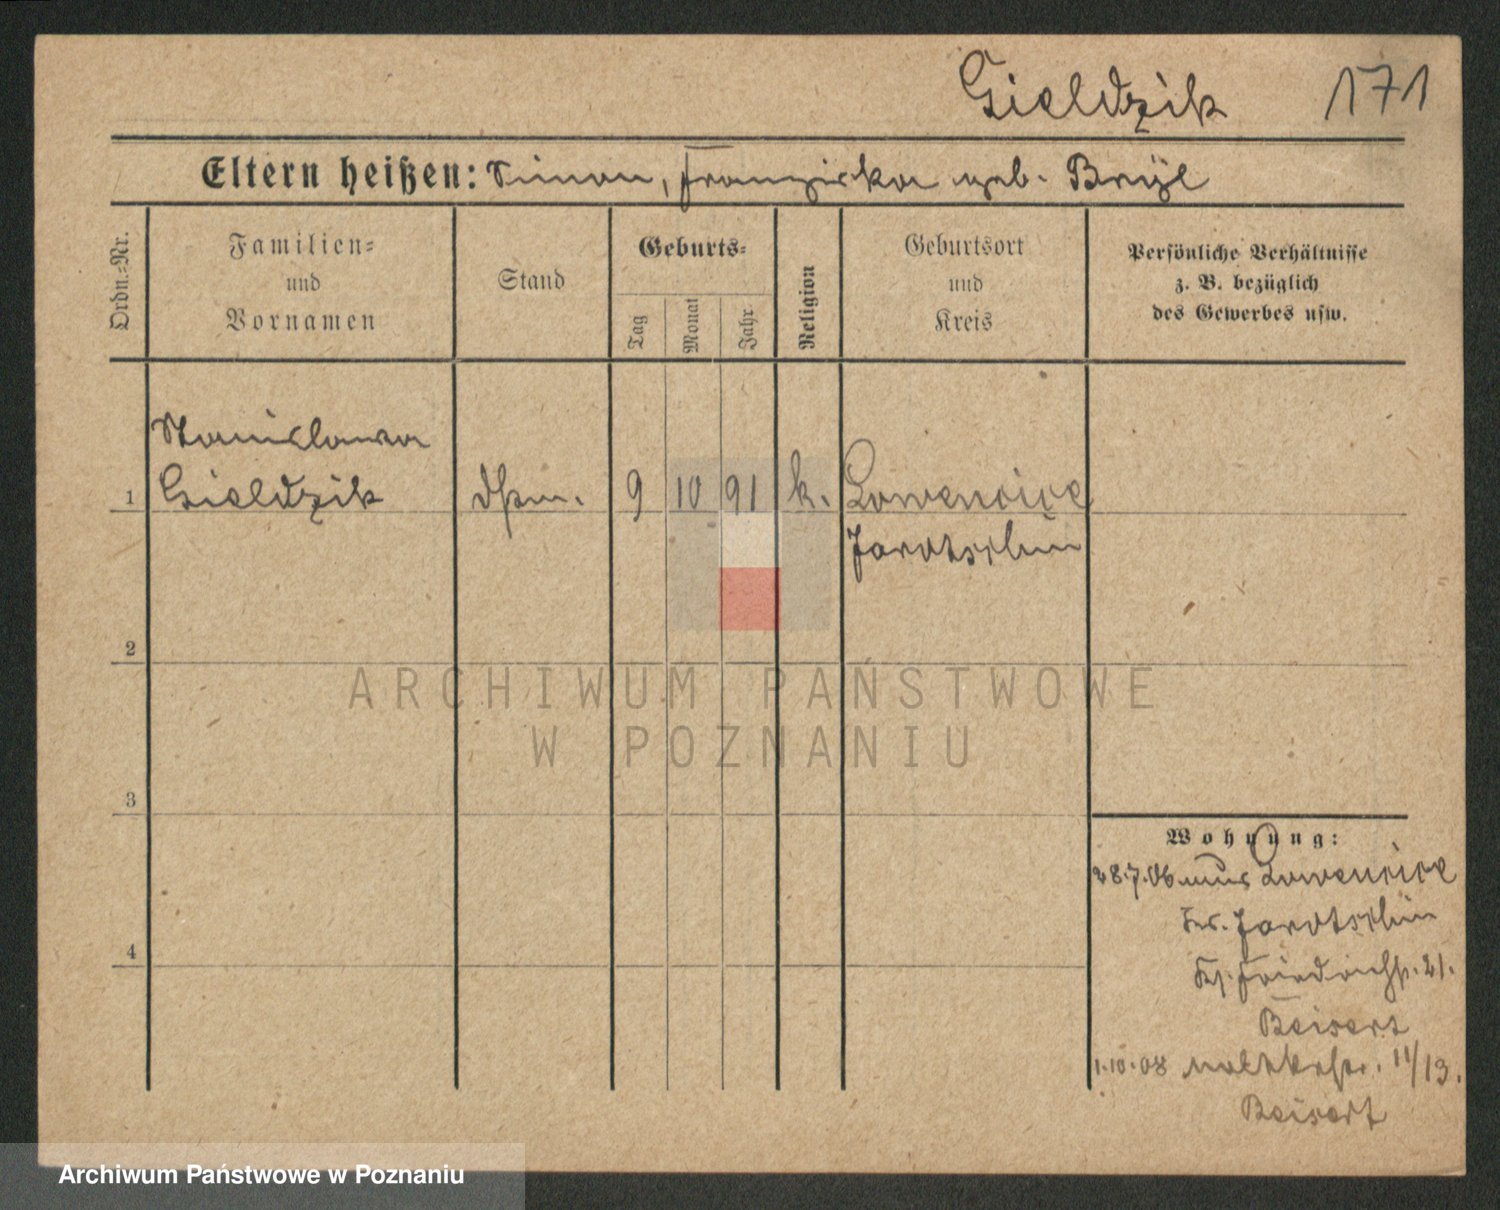 Gieldzik 171
Eltern heißen: Simon, Franziska geb. Bryl
Ordn.-Nr.
Familien-
und
Vornamen
Stand
Geburts-
Tag
Monat
Jahr
Religion
Geburtsort
und
Kreis
Persönliche Verhältnisse
z. B. bezüglich
des Gewerbes usw.
Stanislawa
1 Gieldzik 9 10 91 k. Lowencice
Jarotschin
2
3
4
Wohnung:
28.7.06 aus Lowencice
Kr. Jarotschin
Friedrichstr. 21.
Beisert
1.10.08 Moltkestr. 11/13.
Beisert
ARCHIWUM PAŃSTWOWE
W POZNANIU
Archiwum Państwowe w Poznaniu